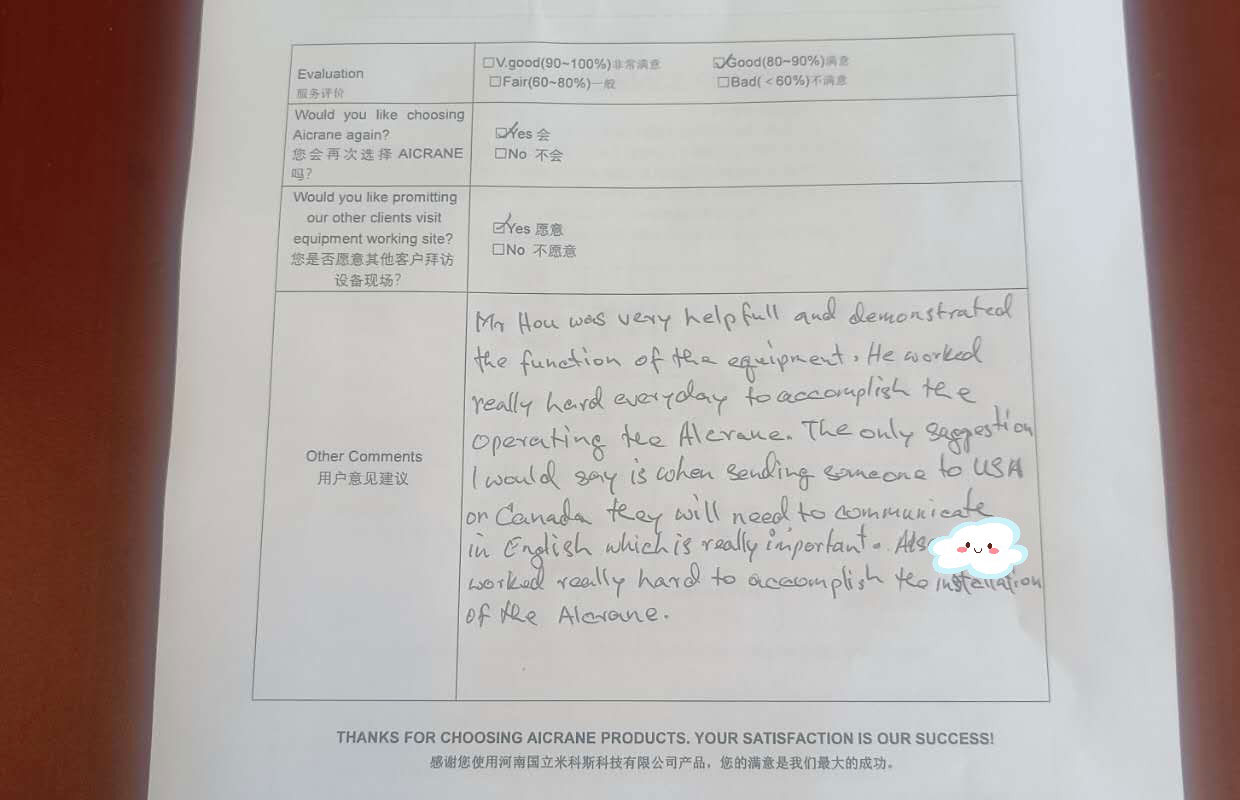 Evaluation
服务评价
☐V.good(90~100%)非常满意 ☑Good(80~90%)满意
☐Fair(60~80%)一般 ☐Bad(<60%)不满意
Would you like choosing
Aicrane again?
您会再次选择 AICRANE
吗?
☑Yes 会
☐No 不会
Would you like promitting
our other clients visit
equipment working site?
您是否愿意其他客户拜访
设备现场?
☑Yes 愿意
☐No 不愿意
Other Comments
用户意见建议
Mr Hou was very helpfull and demonstrated
the function of the equipment. He worked
really hard everyday to accomplish the
operating the AIcrane. The only saggestion
I would say is when sending someone to USA
or Canada they will need to communicate
in English which is really important. Also
worked really hard to accomplish the instellation
of the AIcrane.
THANKS FOR CHOOSING AICRANE PRODUCTS. YOUR SATISFACTION IS OUR SUCCESS!
感谢您使用河南国立米科斯科技有限公司产品，您的满意是我们最大的成功。